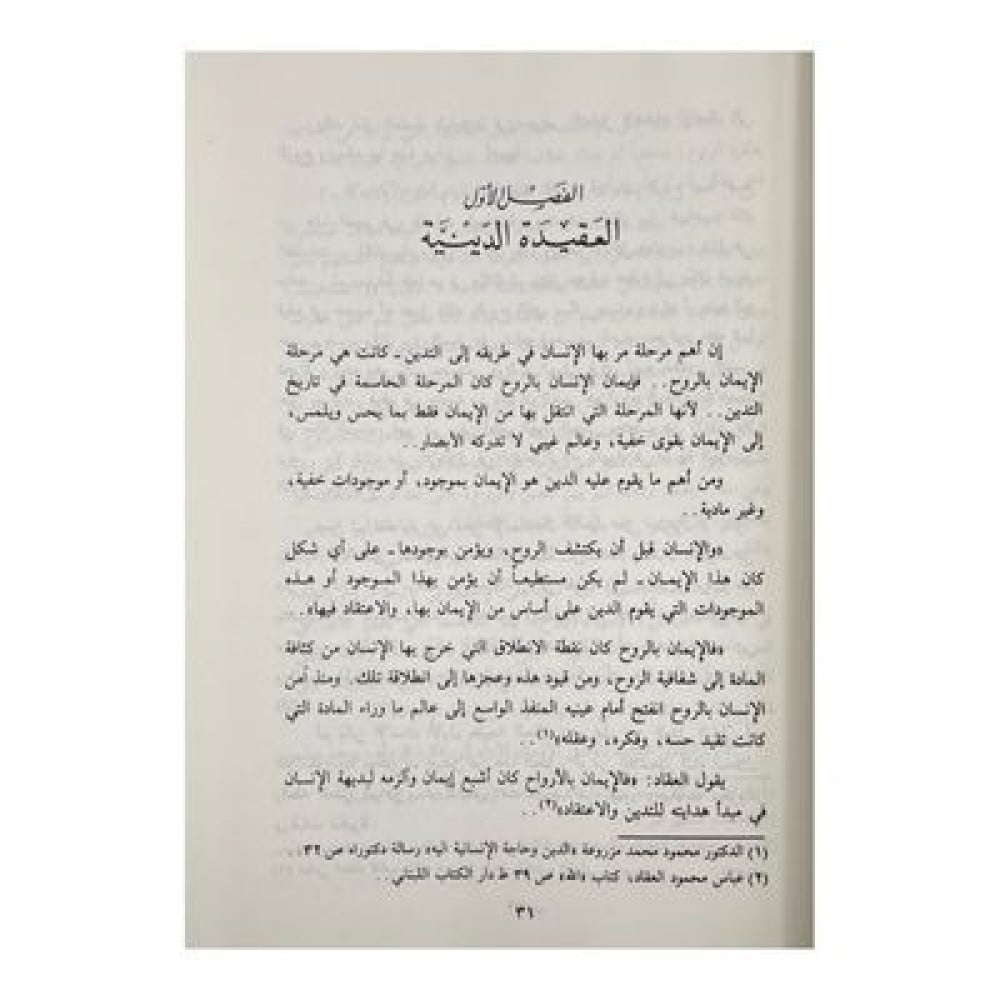 الفصل الأول
العقيدة الدينية
إن أهم مرحلة مر بها الإنسان في طريقه إلى التدين ـ كانت هي مرحلة
الإيمان بالروح . . فإيمان الإنسان بالروح كان المرحلة الحاسمة في تاريخ
التدين . . لأنها المرحلة التي انتقل بها من الإيمان فقط بما يحس ويلمس،
إلى الإيمان بقوى خفية، وعالم غيبي لا تدركه الأبصار . .
ومن أهم ما يقوم عليه الدين هو الإيمان بموجود، أو موجودات خفية،
وغير مادية . .
«والإنسان قبل أن يكتشف الروح، ويؤمن بوجودها ـ على أي شكل
كان هذا الإيمان ـ لم يكن مستطيعاً أن يؤمن بهذا الموجود أو هذه
الموجودات التي يقوم الدين على أساس من الإيمان بها، والاعتقاد فيها» . .
«فالإيمان بالروح كان نقطة الانطلاق التي خرج بها الإنسان من كثافة
المادة إلى شفافية الروح، ومن قيود هذه وعجزها إلى انطلاقة تلك . ومنذ أمن
الإنسان بالروح انفتح أمام عينيه المنفذ الواسع إلى عالم ما وراء المادة التي
كانت تقيد حسه، وفكره، وعقله»(١) . .
يقول العقاد: «فالإيمان بالأرواح كان أشيع إيمان وألزمه لبديهة الإنسان
في مبدأ هدايته للتدين والاعتقاد»(٢) . .
(١) الدكتور محمود محمد مزروعة «الدين وحاجة الإنسانية اليه» رسالة دكتوراه ص ٣٢ . .
(٢) عباس محمود العقاد، كتاب «الله» ص ٣٩ ط دار الكتاب اللبناني . .
٣١